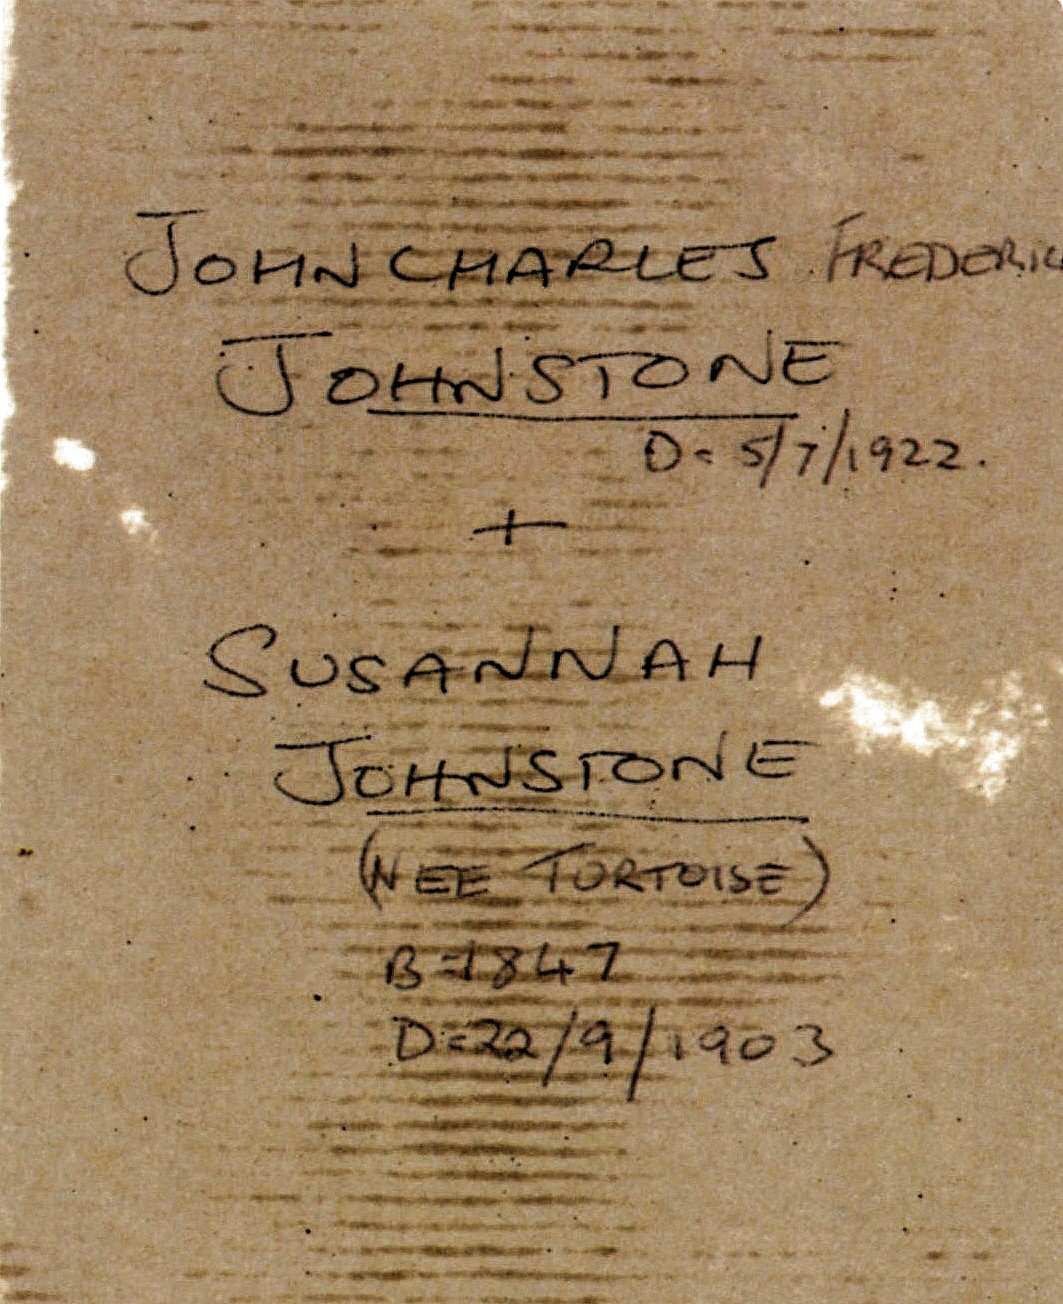 JOHN CHARLES FREDERIC
JOHNSTONE
D= 5/7/1922.
+
SUSANNAH
JOHNSTONE
(NEE TORTOISE)
B=1847
D=22/9/1903